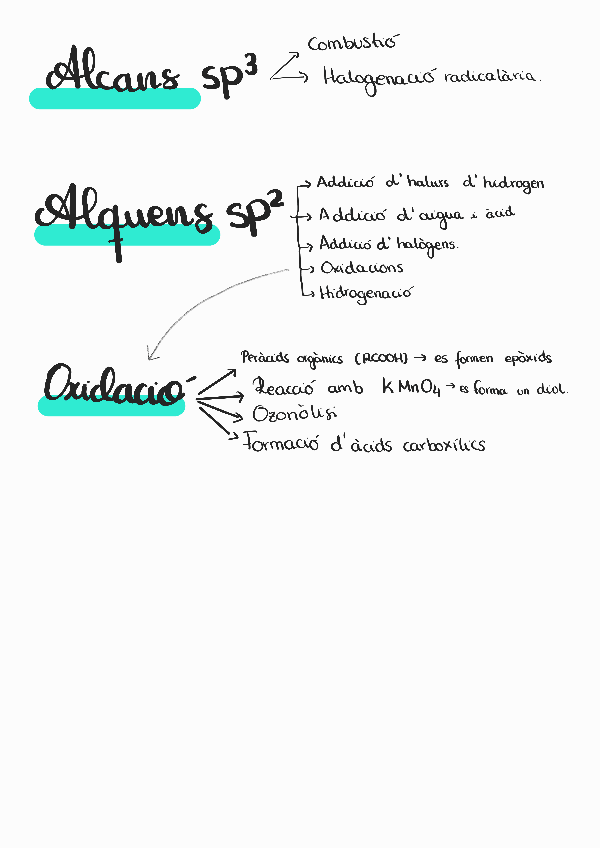 Alcans sp³
Combustió
Halogenació radicalària.
Alquens sp²
Addició d'halurs d'hidrogen
Addició d'aigua i àcid
Addició d'halògens.
Oxidacions
Hidrogenació
Oxidació
Peràcids orgànics (RCOOH) → es formen epòxids
Reacció amb KMnO₄ → es forma un diol.
Ozonòlisi
Formació d'àcids carboxílics